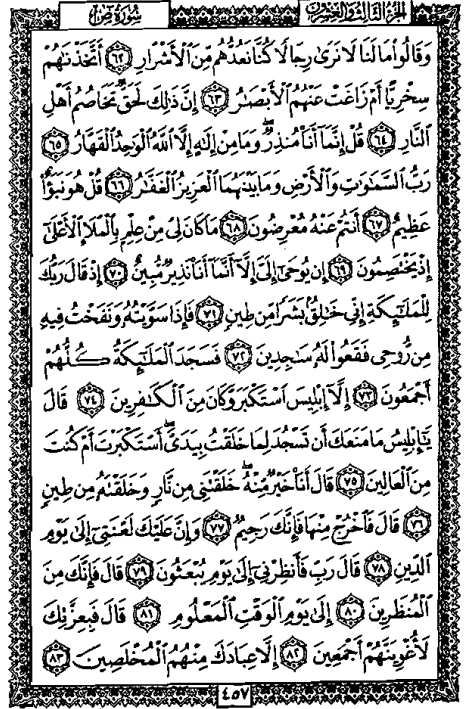 الجزء الثالث والعشرون سورة ص
وَقَالُوا۟ مَا لَنَا لَا نَرَىٰ رِجَالًا كُنَّا نَعُدُّهُم مِّنَ ٱلْأَشْرَارِ ٦٢ أَتَّخَذْنَـٰهُمْ
سِخْرِيًّا أَمْ زَاغَتْ عَنْهُمُ ٱلْأَبْصَـٰرُ ٦٣ إِنَّ ذَٰلِكَ لَحَقٌّ تَخَاصُمُ أَهْلِ
ٱلنَّارِ ٦٤ قُلْ إِنَّمَآ أَنَا۠ مُنذِرٌ ۖ وَمَا مِنْ إِلَـٰهٍ إِلَّا ٱللَّهُ ٱلْوَٰحِدُ ٱلْقَهَّارُ ٦٥
رَبُّ ٱلسَّمَـٰوَٰتِ وَٱلْأَرْضِ وَمَا بَيْنَهُمَا ٱلْعَزِيزُ ٱلْغَفَّـٰرُ ٦٦ قُلْ هُوَ نَبَؤٌا۟
عَظِيمٌ ٦٧ أَنتُمْ عَنْهُ مُعْرِضُونَ ٦٨ مَا كَانَ لِىَ مِنْ عِلْمٍۭ بِٱلْمَلَإِ ٱلْأَعْلَىٰٓ
إِذْ يَخْتَصِمُونَ ٦٩ إِن يُوحَىٰٓ إِلَىَّ إِلَّآ أَنَّمَآ أَنَا۠ نَذِيرٌ مُّبِينٌ ٧٠ إِذْ قَالَ رَبُّكَ
لِلْمَلَـٰٓئِكَةِ إِنِّى خَـٰلِقٌۢ بَشَرًا مِّن طِينٍ ٧١ فَإِذَا سَوَّيْتُهُۥ وَنَفَخْتُ فِيهِ
مِن رُّوحِى فَقَعُوا۟ لَهُۥ سَـٰجِدِينَ ٧٢ فَسَجَدَ ٱلْمَلَـٰٓئِكَةُ كُلُّهُمْ
أَجْمَعُونَ ٧٣ إِلَّآ إِبْلِيسَ ٱسْتَكْبَرَ وَكَانَ مِنَ ٱلْكَـٰفِرِينَ ٧٤ قَالَ
يَـٰٓإِبْلِيسُ مَا مَنَعَكَ أَن تَسْجُدَ لِمَا خَلَقْتُ بِيَدَىَّ ۖ أَسْتَكْبَرْتَ أَمْ كُنتَ
مِنَ ٱلْعَالِينَ ٧٥ قَالَ أَنَا۠ خَيْرٌ مِّنْهُ ۖ خَلَقْتَنِى مِن نَّارٍ وَخَلَقْتَهُۥ مِن طِينٍ
٧٦ قَالَ فَٱخْرُجْ مِنْهَا فَإِنَّكَ رَجِيمٌ ٧٧ وَإِنَّ عَلَيْكَ لَعْنَتِىٓ إِلَىٰ يَوْمِ
ٱلدِّينِ ٧٨ قَالَ رَبِّ فَأَنظِرْنِىٓ إِلَىٰ يَوْمِ يُبْعَثُونَ ٧٩ قَالَ فَإِنَّكَ مِنَ
ٱلْمُنظَرِينَ ٨٠ إِلَىٰ يَوْمِ ٱلْوَقْتِ ٱلْمَعْلُومِ ٨١ قَالَ فَبِعِزَّتِكَ
لَأُغْوِيَنَّهُمْ أَجْمَعِينَ ٨٢ إِلَّا عِبَادَكَ مِنْهُمُ ٱلْمُخْلَصِينَ ٨٣
٤٥٧